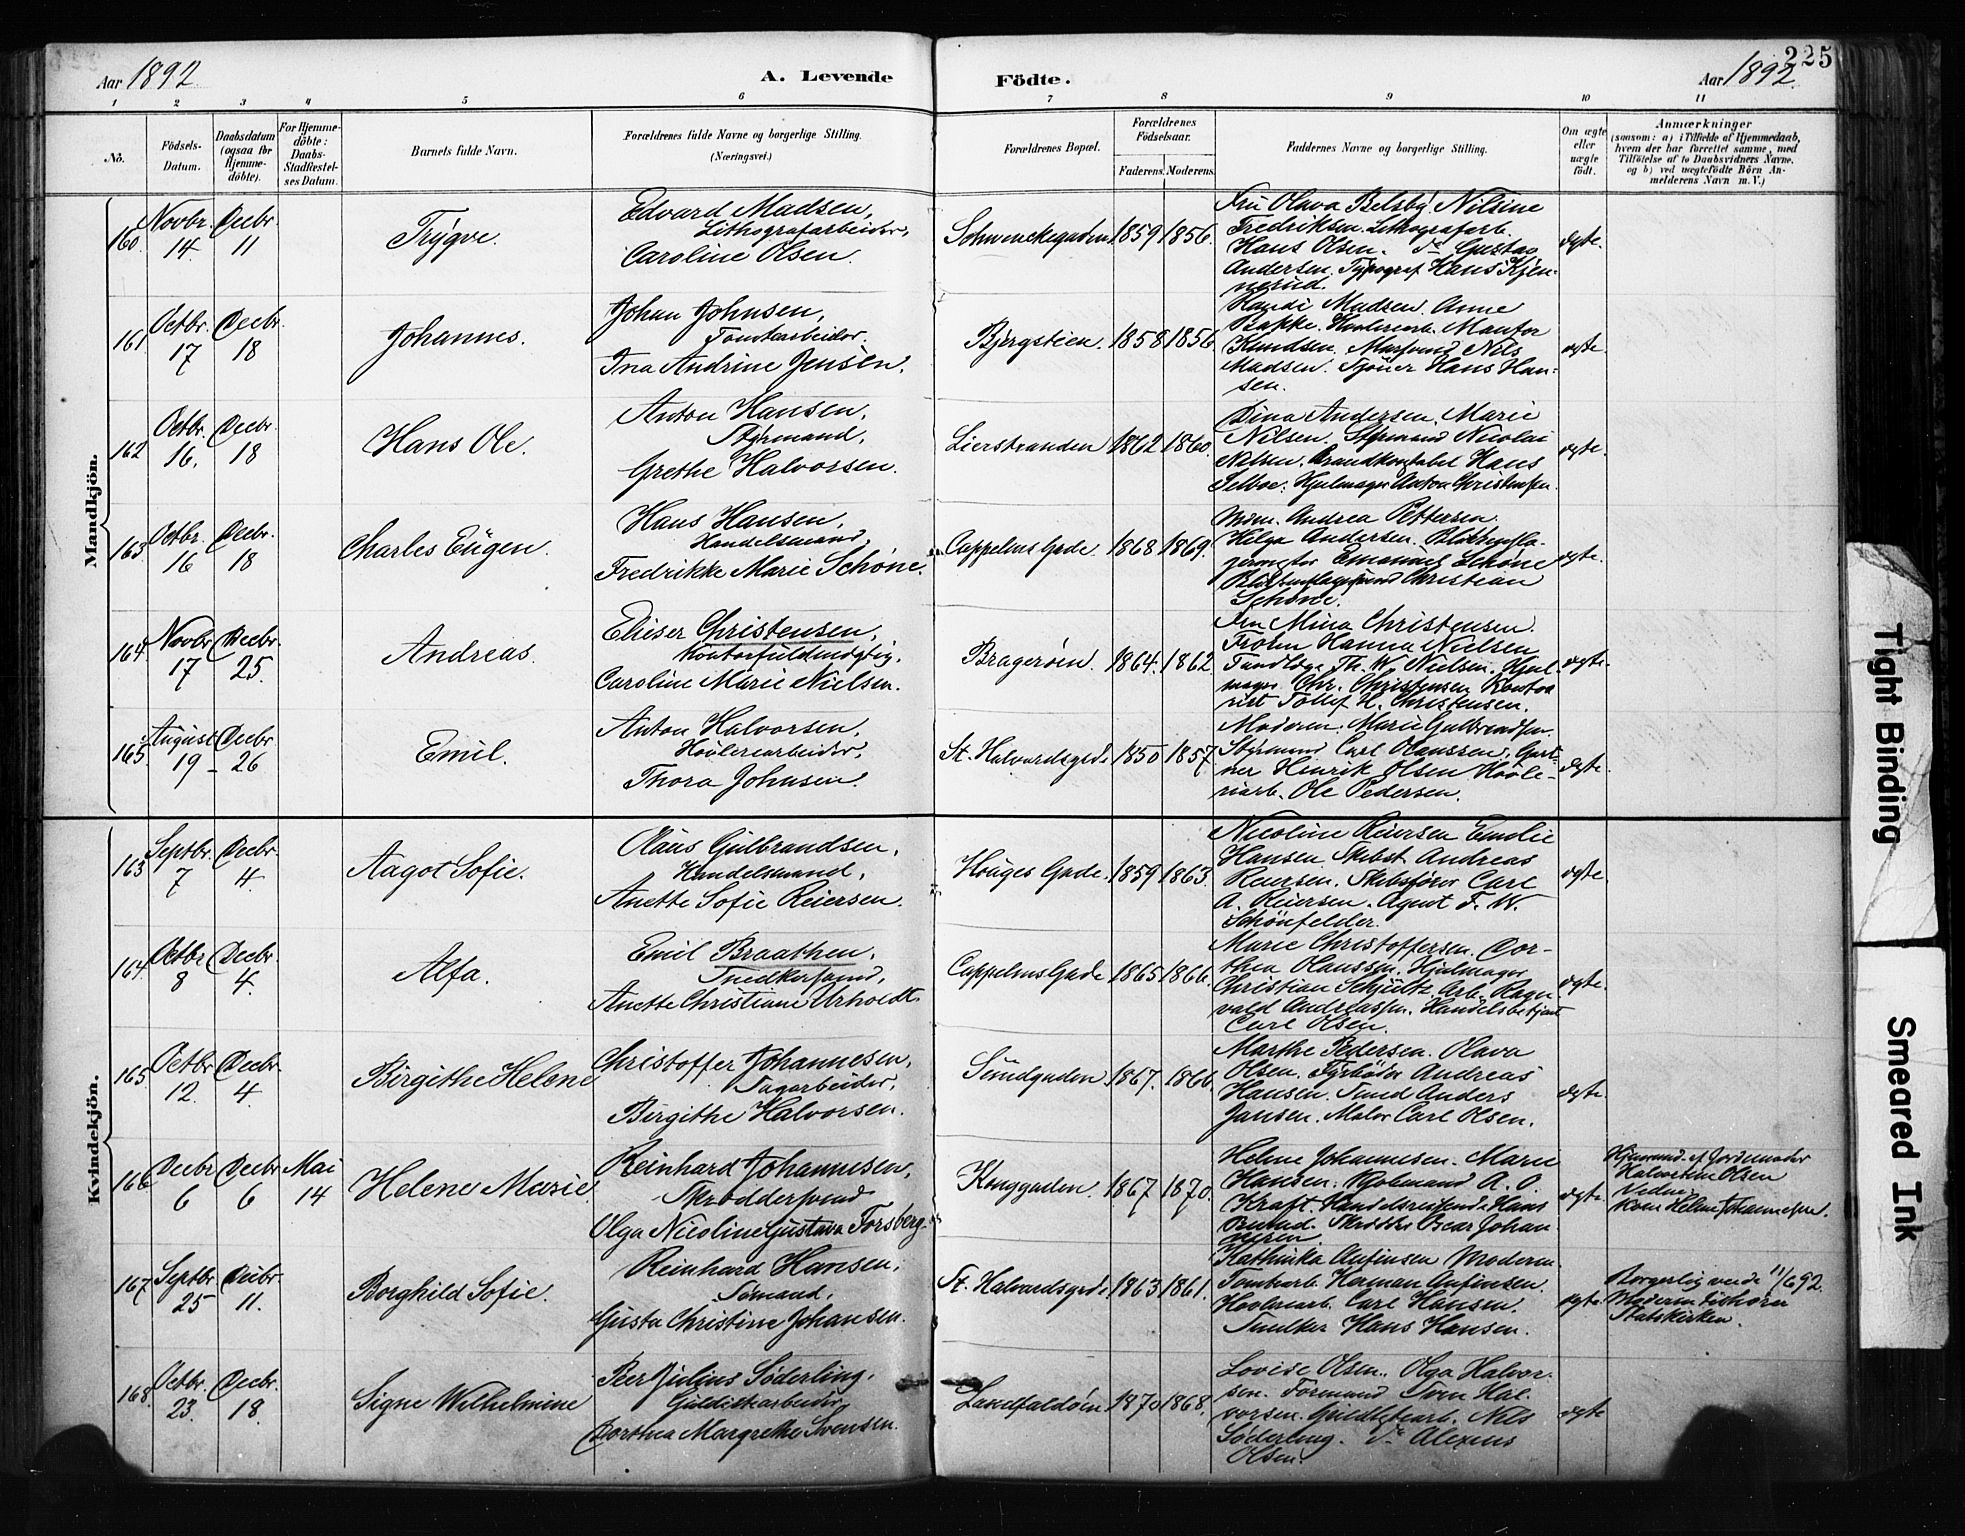 225
Aar 1892.
A. Levende Födte.
Aar 1892.
1 2 3 4 5 6 7 8 9 10 11
No.
Födsels-Datum.
Daabsdatum (ogsaa for Hjemme-döbte).
For Hjemme-döbte: Daabs-Stadfæstel-ses Datum.
Barnets fulde Navn.
Forældrenes fulde Navne og borgerlige Stilling. (Næringsvei.)
Forældrenes Bopæl.
Forældrenes Födselsaar.
Faderens. Moderens.
Faddernes Navne og borgerlige Stilling.
Om ægte eller uægte födt.
Anmærkninger
(saasom: a) i Tilfælde af Hjemmedaab, hvem der har forrettet samme, med Tilföielse af to Daabsvidners Navne, og b) ved uægtefödte Börn An-melderens Navn m. V.)
Mandkjön.
160. Novbr. 14. Decbr. 11
Trygve.
Edvard Madsen,
Lithografarbeider,
Caroline Olsen.
Schwenckegaden 1859 1856.
Fru Olava Belsby. Nilsine
Fredriksen. Lithografarb.
Hans Olsen. do Gustav
Andersen. Typograf Hans Kjen-
nerud.
ægte.
161 Octbr. 17 Decbr. 18
Johannes.
Johan Johnsen,
Tomtearbeider.
Ina Andrine Jensen.
Bjergstien. 1858 1856
Madsen. Anne
Bakke. Hövleriarb.
Knudsen. Nils
Madsen. Hans Han-
sen.
ægte.
162 Octbr. 16. Decbr. 18
Hans Ole.
Anton Hansen,
Styrmand,
Grethe Halvorsen.
Lierstranden 1862 1860.
Dina Andersen. Marie
Nilsen. Styrmand Nicolai
Nilsen. Brandkonstabel Hans
Selboe. Hjulmager Anton Christensen.
ægte.
163. Octbr. 16 Decbr. 18
Charles Eugen.
Hans Hansen,
Handelsmand,
Fredrikke Marie Schöne.
Cappelens Gade. 1868 1869.
Mdm. Andrea Pettersen.
Helga Andersen.
Emanuel Schöne
Christian
Schöne.
ægte.
164. Novbr. 17 Decbr. 25.
Andreas.
Elieser Christensen,
Kontorfuldmægtig,
Caroline Marie Nielsen.
Bragerøen. 1864. 1862
Fru Mina Christensen.
Frøken Hanna Nielsen
Tandlæge Th. W. Nielsen. Hjul-
mager Chr. Christensen Konto-
rist Tollef H. Christensen.
ægte.
165. August 19 - Decbr. 26
Emil.
Anton Halvorsen,
Høvleriarbeider,
Thora Johnsen.
St. Halvardsgade 1850 1857.
Moderen. Marie Gulbrandsen.
Styrmand Carl Olaussen. Gart-
ner Hinrik Olsen Høvle-
riarb. Ole Pedersen.
ægte.
Kvindekjön.
163 Septbr. 7 Decbr. 4
Aagot Sofie.
Olaus Gulbrandsen,
Handelsmand,
Anette Sofie Reiersen.
Houges Gade. 1859 1863.
Nicoline Reiersen Emelie
Hansen. Skibst. Andreas
Reiersen. Skibsfører Carl
A. Reiersen. Agent F. W.
Schönfelder.
ægte.
164 Octbr 8 Decbr. 4.
Alfa.
Emil Braathen,
Snedkersvend,
Anette Christiane Urholdt.
Cappelens Gade 1865 1866.
Marie Christoffersen. Dor-
thea Olaussen. Hjulmager
Christian Schjultz Arb. Ragn-
vald Andreassen. Handelsbetjent
Carl Olsen.
ægte.
165 Octbr 12. Decbr. 4.
Birgithe Helene
Christoffer Johannesen,
Sagarbeider,
Birgithe Halvorsen.
Sundgaden. 1867. 1866.
Marthe Pedersen. Olava
Olsen. Fyrbøder Andreas
Hansen. Smed Anders
Jansen. Maler Carl Olsen.
ægte.
166 Decbr 6 Decbr 6 Mai 14
Helene Marie
Reinhard Johannesen,
Skræddersvend
Olga Nicoline Gustava Forsberg.
Konggaden. 1867 1870.
Helene Johannesen. Marie
Hansen. A. O.
Kraft. Handelsreisende Hans
Skrædder Oscar Johan-
nesen.
ægte.
af Jordemoder
Halvorsine Olsen
Vidne
Kone Helene Johannesen.
167 Septbr. 25 Decbr. 11.
Borghild Sofie.
Reinhard Hansen,
Sømand,
Gusta Christine Johansen.
St. Halvardsgade 1863 1861.
Kathinka Anfinsen Moderen
Tomtearb. Herman Anfinsen.
Høvleriarb. Carl Hansen.
Snedker Hans Hansen.
ægte.
Borgerlig viede 11/6 92.
Moderen tilhører
Statskirken.
168. Octbr. 23. Decbr. 18.
Signe Wilhelmine
Peer Julius Søderling,
Guldlistearbeider,
Dorthea Margrethe Svensen.
1870 1868.
Lovise Olsen. Olga Halvor-
sen. Formand Sven Hal-
vorsen. Guldlistearb. Nils
Søderling. do Alexius
Olsen.
ægte
Tight Binding
Smeared Ink